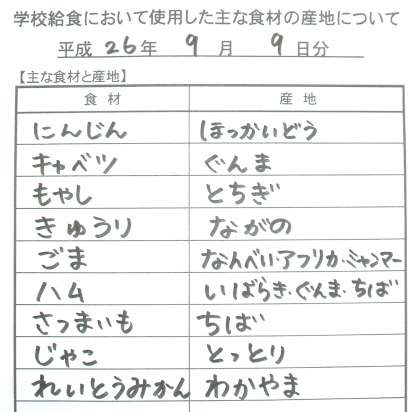 学校給食において使用した主な食材の産地について
平成 26 年 9 月 9 日分
【主な食材と産地】
食 材 産 地
にんじん ほっかいどう
キャベツ ぐんま
もやし とちぎ
きゅうり ながの
ごま なんべい・アフリカ・ミャンマー
ハム いばらき・ぐんま・ちば
さつまいも ちば
じゃこ とっとり
れいとうみかん わかやま